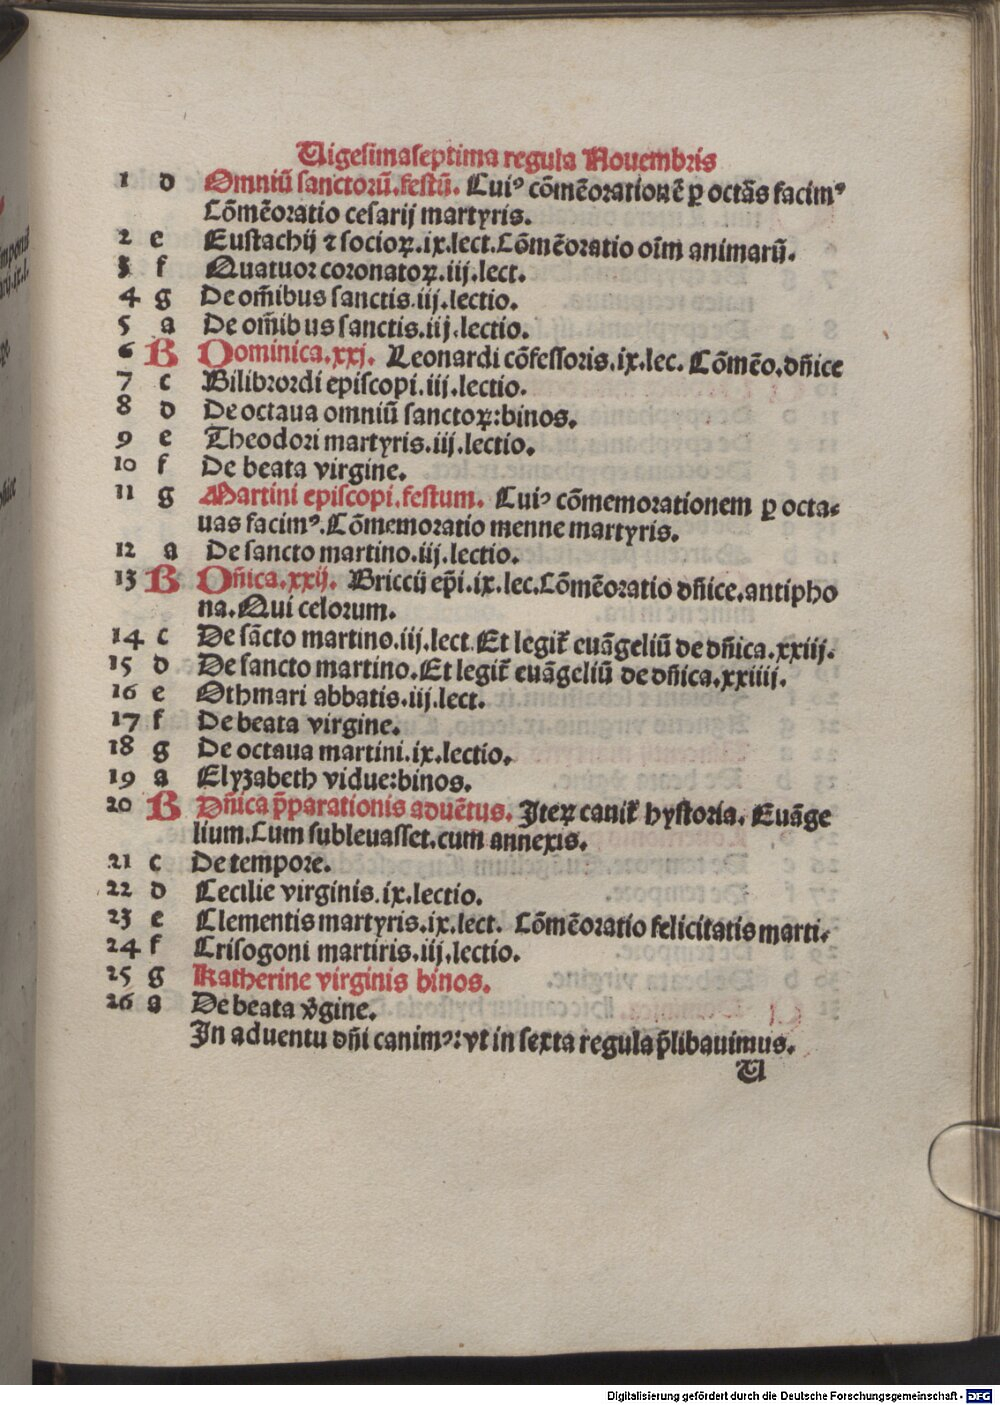 Uigesimaseptima regula Nouembris
1 d Omniū sanctorū.festū. Cuiꝰ cōmēorationē ꝑ octās facimꝰ
Cōmēoratio cesarij martyris.
2 e Eustachij ⁊ socioꝝ.ix.lect.Cōmēoratio oīm animarū.
3 f Quatuor coronatoꝝ.iij.lect.
4 g De om̄ibus sanctis.iij.lectio.
5 a De om̄ibus sanctis.iij.lectio.
6 B Dominica.xxj. Leonardi cōfessoris.ix.lec. Cōmēo.dn̄ice
7 c Bilibrordi episcopi.iij.lectio.
8 d De octaua omniū sanctoꝝ:binos.
9 e Theodori martyris.iij.lectio.
10 f De beata virgine.
11 g Martini episcopi.festum. Cuiꝰ cōmemorationem ꝑ octa-
uas facimꝰ.Cōmemoratio menne martyris.
12 a De sancto martino.iij.lectio.
13 B Dn̄ica.xxij. Briccij ep̄i.ix.lec.Cōmēoratio dn̄ice.antipho
na.Qui celorum.
14 c De sācto martino.iij.lect.Et legit̄ euāgeliū de dn̄ica.xxiij.
15 d De sancto martino.Et legit̄ euāgeliū de dn̄ica.xxiiij.
16 e Othmari abbatis.iij.lect.
17 f De beata virgine.
18 g De octaua martini.ix.lectio.
19 a Elyzabeth vidue:binos.
20 B Dn̄ica p̄parationis aduētus. Iteꝝ canit̄ hystoria. Euāge
lium.Cum subleuasset.cum annexis.
21 c De tempore.
22 d Cecilie virginis.ix.lectio.
23 e Clementis martyris.ix.lect. Cōmēoratio felicitatis marti-
24 f Crisogoni martiris.iij.lectio.
25 g Katherine virginis binos.
26 a De beata v̓gine.
In aduentu dn̄i canimꝰ:vt in sexta regula p̄libauimus.
U
Digitalisierung gefördert durch die Deutsche Forschungsgemeinschaft - DFG